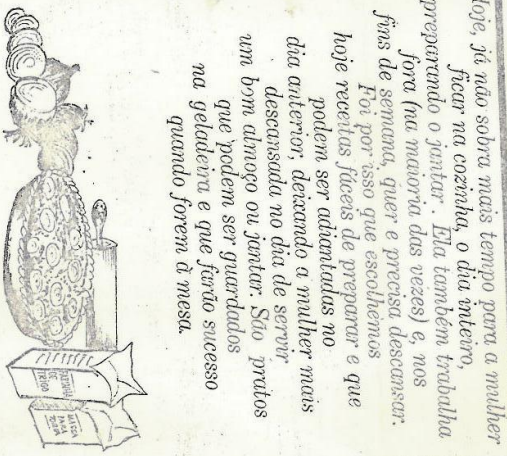 Hoje, já não sobra mais tempo para a mulher
ficar na cozinha, o dia inteiro,
preparando o jantar. Ela também trabalha
fora (na maioria das vezes) e, nos
fins de semana, quer e precisa descansar.
Foi por isso que escolhemos
hoje receitas fáceis de preparar e que
podem ser adiantadas no
dia anterior, deixando a mulher mais
descansada no dia de servir
um bom almoço ou jantar. São pratos
que podem ser guardados
na geladeira e que farão sucesso
quando forem à mesa.
FARINHA
DE
TRIGO
MASSA
PARA